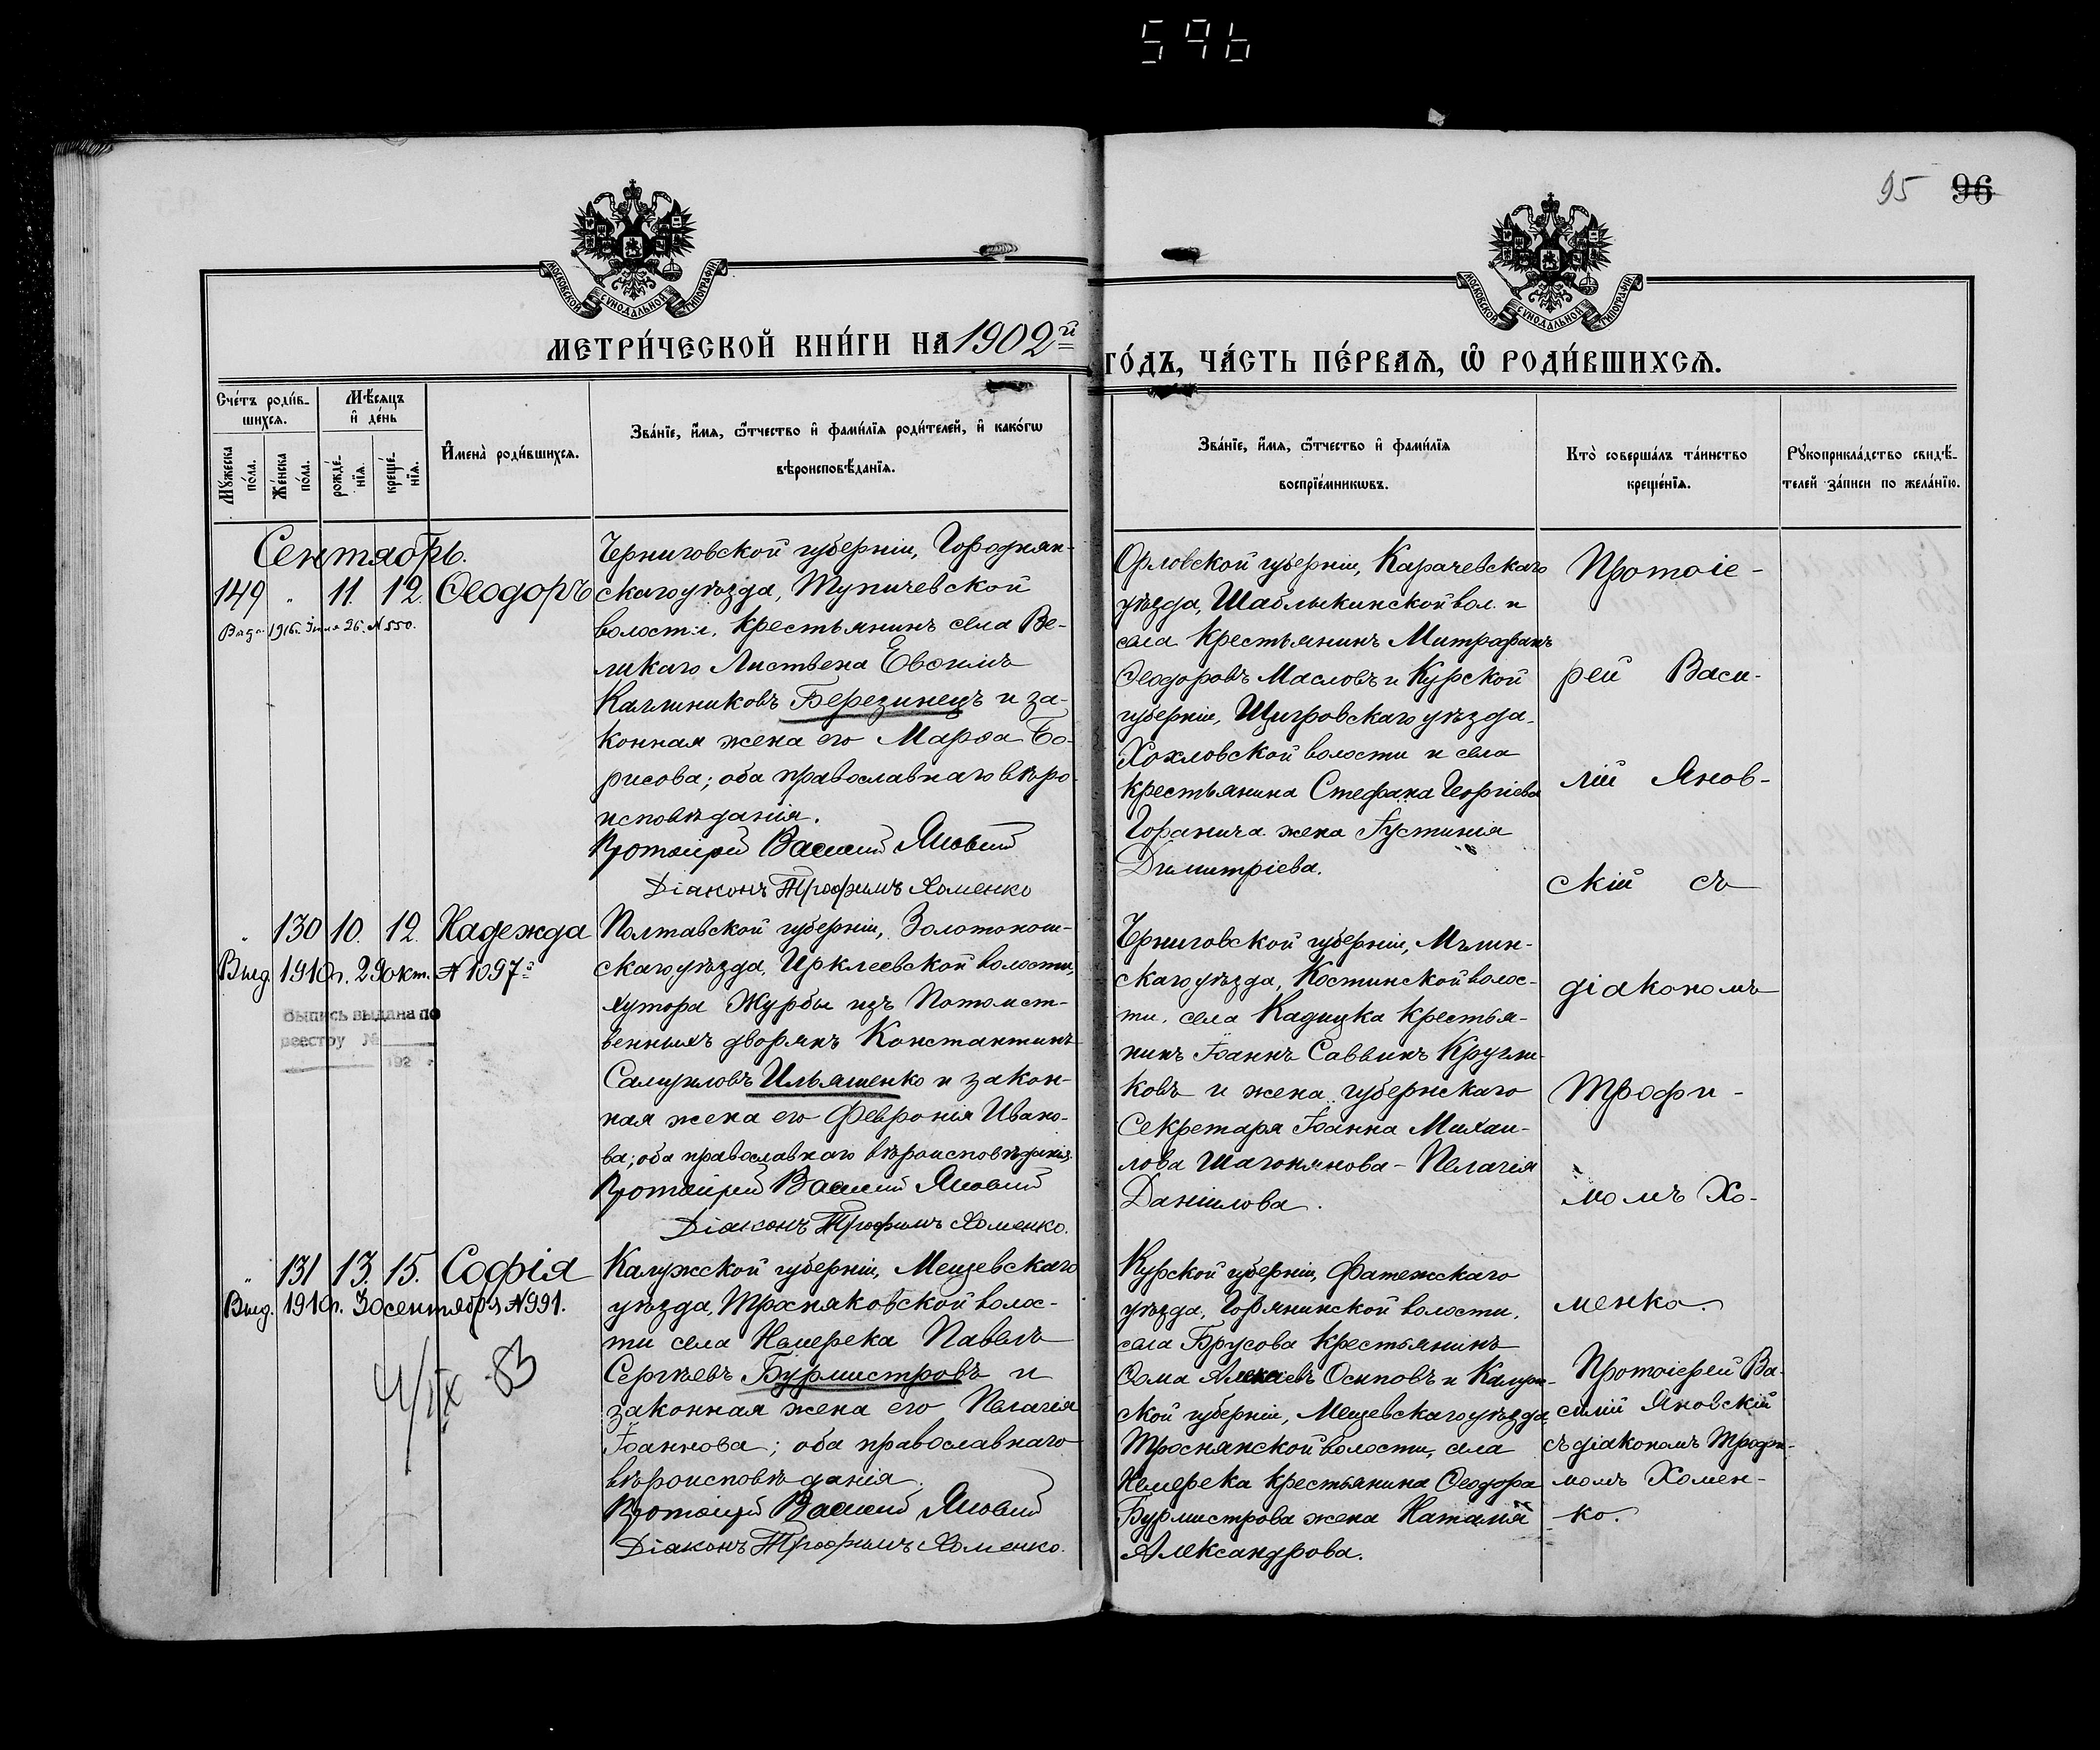 596
95 96
МОСКОВСКОЙ СУНОДАЛЬНОЙ ТИПОГРАФІИ
МОСКОВСКОЙ СУНОДАЛЬНОЙ ТИПОГРАФІИ
МЕТРИ́ЧЕСКОЙ КНИ́ГИ НА 1902й
ГО́ДЪ, ЧА́СТЬ ПЕ́РВАѦ, Ѡ҆ РОДИ́ВШИХСѦ.
Сче́тъ роди́в-
шихсѧ.
Мѣ́сѧцъ
и҆ де́нь
Мꙋ́жеска по́ла.
Же́нска по́ла.
рожде́-нїѧ.
креще́-нїѧ.
И҆мена̀ роди́вшихсѧ.
Зва́нїе, и҆́мѧ, ѻ҆́тчество и҆ фами́лїѧ роди́телей, и҆ како́гѡ
вѣроисповѣ́данїѧ.
Зва́нїе, и҆́мѧ, ѻ҆́тчество и҆ фами́лїѧ
воспрїе́мникѡвъ.
Кто̀ соверша́лъ та́инство
креще́нїѧ.
Рꙋкоприкла́дство свидѣ́-
телей за́писи по жела́нїю.
Сентябрь.
149 " 11. 12. Ѳеодоръ
1916г. 26. № 550.
Черниговской губерніи, Городнян-
скаго уѣзда, Тупичевской
волости, крестьянинъ села Ве-
ликаго Листвена Евѳимъ
Калинниковъ Березинецъ и за-
конная жена его Марѳа Бо-
рисова; оба православнаго вѣро-
исповѣданія.
Протоіерей Василій Яновскій
Діаконъ Трофимъ Хоменко
Орловской губерніи, Карачевскаго
уѣзда, Шаблыкинской вол. и
села крестьянинъ Митрофанъ
Ѳеодоровъ Масловъ и Курской
губерніи, Щигровскаго уѣзда,
Хохловской волости и села
крестьянина Стефана Георгіева
жена Іустинія
Димитріева.
Протоіе-
рей Васи-
лій Янов-
скій съ
діакономъ
Трофи-
момъ Хо-
менко.
" 130 10. 12. Надежда
Выд. 1910г. 29 окт. № 1097й
Выпись выдана по
реестру №
192 г
Полтавской губерніи, Золотонош-
скаго уѣзда, Ирклеевской волости,
хутора Журбы изъ потомст-
венныхъ дворянъ Константинъ
Самуиловъ Ильяшенко и закон-
ная жена его Февронія Ивано-
ва; оба православнаго вѣроисповѣданія.
Протоіерей Василій Яновскій
Діаконъ Трофимъ Хоменко.
Черниговской губерніи, Мглин-
скаго уѣзда, Костинской волос-
ти, села крестья-
нинъ Іоаннъ Саввинъ Кругли-
ковъ и жена губернскаго
секретаря Іоанна Михаи-
лова - Пелагія
Даніилова.
" 131 13. 15. Софія
Выд. 1910г. 30 сентября № 991.
4/IX 83
Калужской губерніи, Мещевскаго
уѣзда, волос-
ти села Немерека Павелъ
Сергѣевъ Бурмистровъ и
законная жена его Пелагія
Іоаннова; оба православнаго
вѣроисповѣданія.
Протоіерей Василій Яновскій
Діаконъ Трофимъ Хоменко.
Курской губерніи, Фатежскаго
уѣзда, волости,
села Брусова крестьянинъ
Ѳома Осиповъ и Калуж-
ской губерніи, Мещевскаго уѣзда,
Троснянской волости, села
Немерека крестьянина Ѳеодора
Бурмистрова жена Наталія
Александрова.
Протоіерей Ва-
силій Яновскій
съ діакономъ Трофи-
момъ Хомен-
ко.